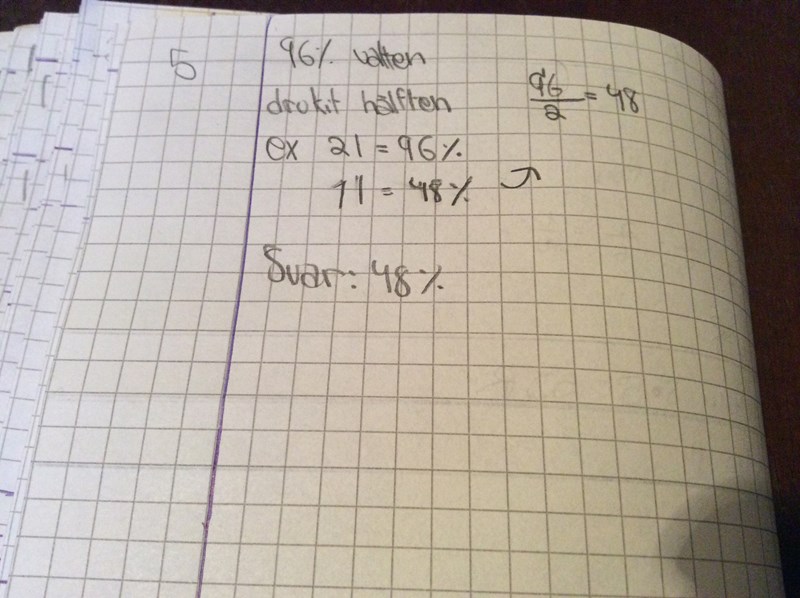 5 96% vatten
drukit hälften 96/2 = 48
ex 2l = 96%
1l = 48%
Svar: 48%